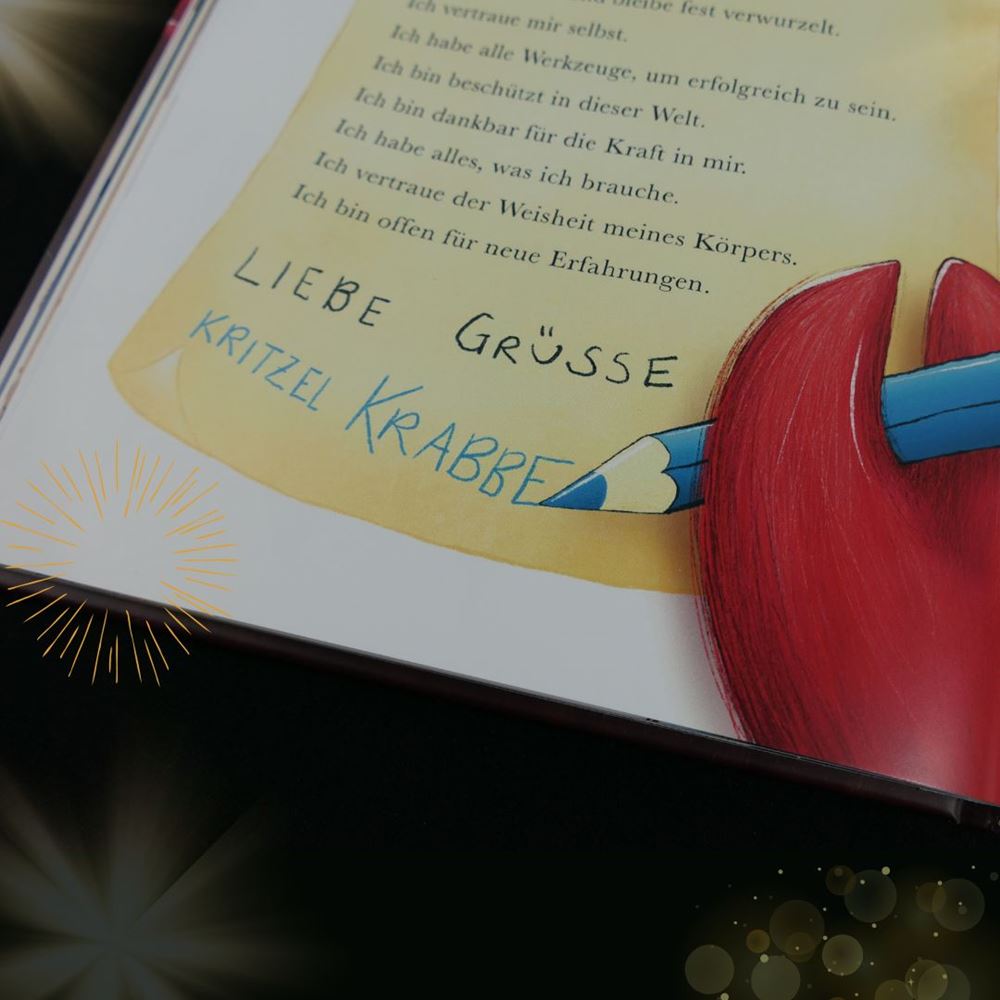 bleibe fest verwurzelt.
Ich vertraue mir selbst.
Ich habe alle Werkzeuge, um erfolgreich zu sein.
Ich bin beschützt in dieser Welt.
Ich bin dankbar für die Kraft in mir.
Ich habe alles, was ich brauche.
Ich vertraue der Weisheit meines Körpers.
Ich bin offen für neue Erfahrungen.
LIEBE GRÜSSE
KRITZEL KRABBE